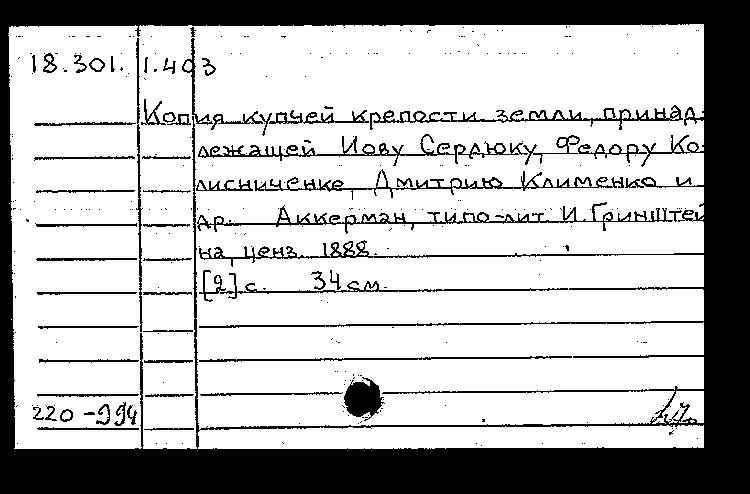 18.301.1.403
Копия купчей крепости земли, принад-
лежащей Иову Сердюку, Федору Ко-
лисниченке, Дмитрию Клименко и
др. Аккерман, типо-лит. И. Гринштей
на, ценз. 1888.
[2] с. 34 см.
220-994